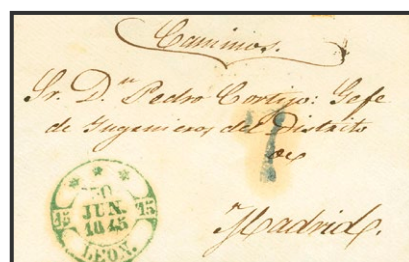 Caminos.
Sr. D.n Pedro Cortijo: Gefe
de Yngenieros del Distrito
de
Madrid.
JUN.
15 15
1845
LEON.